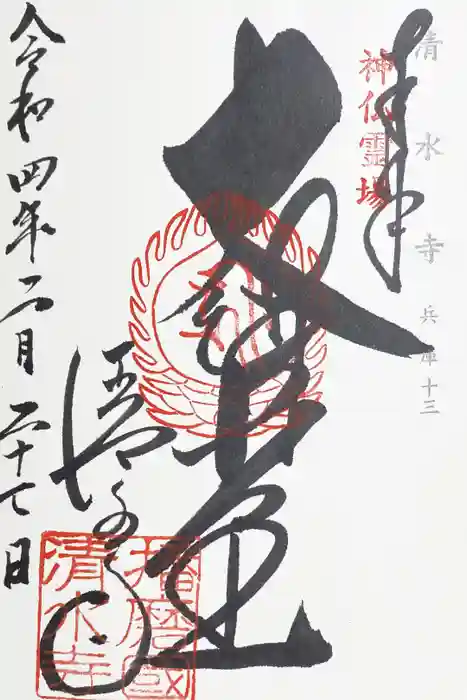 清水寺 兵庫十三
奉拝
神仏霊場
大講堂
清水寺
播磨國
清水寺
令和四年二月二十七日